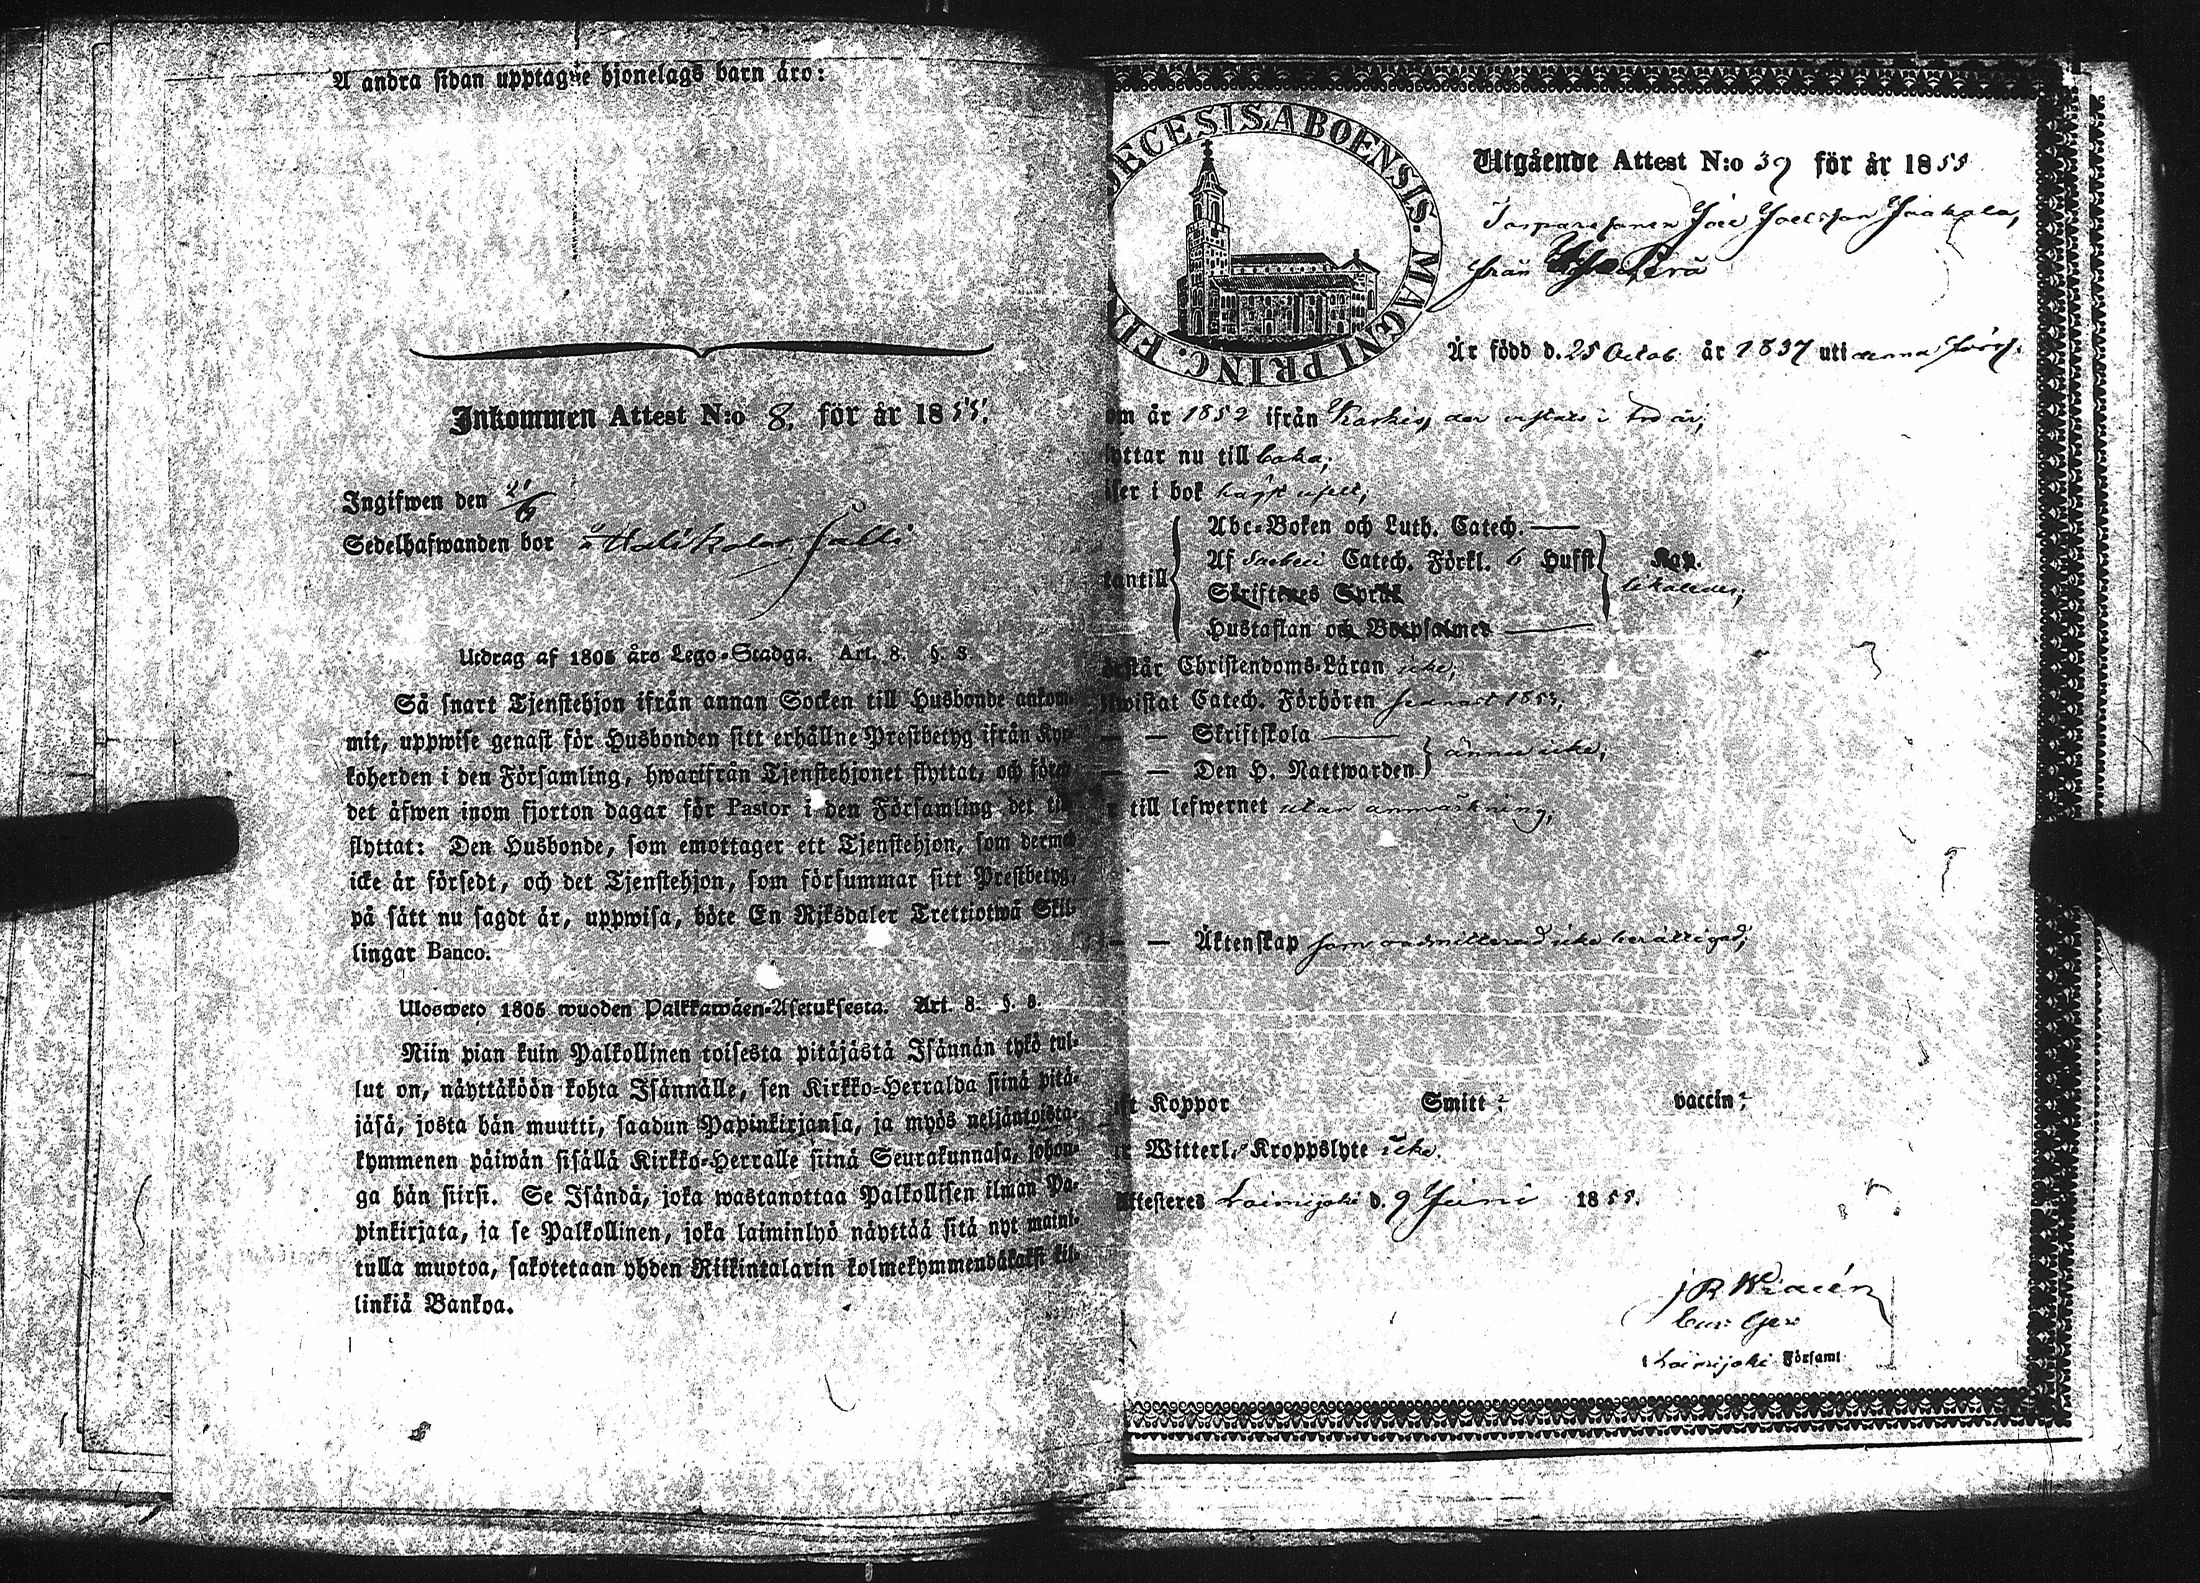 A andra sidan upptagne hjonelags barn äro:
Inkommen Attest N:o 8. för år 1855.
Ingifwen den 21/6
Sedelhafwanden bor
Utdrag af 1805 års Lego-Stadga. Art. 8. §. 8.
Så snart Tjenstehjon ifrån annan Socken till Husbonde ankom-
mit, uppwise genast för Husbonden sitt erhållne Prestbetyg ifrån Kyr-
koherden i den Församling, hwarifrån Tjenstehjonet flyttat, och förete
det äfwen inom fjorton dagar för Pastor i den Församling det till
flyttat: Den Husbonde, som emottager ett Tjenstehjon, som dermed
icke är försedt, och det Tjenstehjon, som försummar sitt Prestbetyg,
på sätt nu sagdt är, uppwisa, böte En Riksdaler Trettiotwå Skil-
lingar Banco.
Ulosweto 1805 wuoden Palkkawäen-Asetuksesta. Art. 8. §. 8.
Niin pian kuin Palkollinen toisesta pitäjästä Isännän tykö tul-
lut on, näyttäköön kohta Isännälle, sen Kirkko-Herralda siinä pitä-
jäsä, josta hän muutti, saadun Papinkirjansa, ja myös neljäntoista-
kymmenen päiwän sisällä Kirkko-Herralle siinä Seurakunnasa, johon-
ga hän siirsi. Se Isändä, joka wastanottaa Palkollisen ilman Pa-
pinkirjata, ja se Palkollinen, joka laiminlyö näyttää sitä nyt maini-
tulla muotoa, sakotetaan yhden Riikintalarin kolmekymmendäkaksi kil-
linkiä Bankoa.
ECESIS ABOENSIS. MAGNI PRINC. FI
Utgående Attest N:o 39 för år 1855
Joel Joelsson Jaakola,
från
Är född d. 25 Octob. år 1837 uti denna Förs.
om år 1852 ifrån Karkku, der wistats i två år,
yttar nu till
ser i bok
Abc-Boken och Luth. Catech.
Af Swebelii Catech. Förkl. 6 Hufst
Kap.
tantill
Skriftenes Språk
Hustaflan och Botpsalmer
örstår Christendoms-Läran icke;
Catech. Förhören senast 1855,
— — Skriftskola
ännu icke;
— — Den H. Nattwarden
till lefwernet utan anmärkning,
— — Äktenskap som oadmitterad icke berättigad;
Koppor Smitt ? vaccin ?
Witterl. Kroppslyte icke.
Attesteres Loimijoki d. 9 Juni 1855.
i Loimijoki Församl.